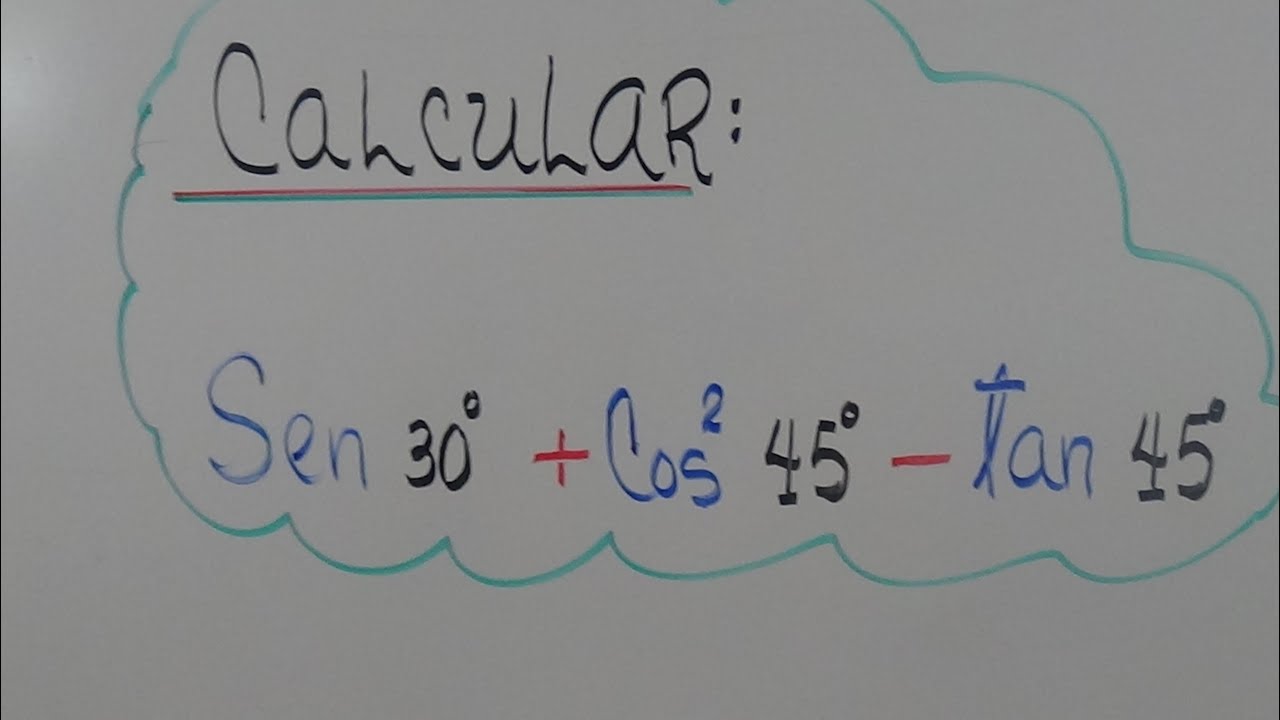 CALCULAR:
Sen 30° + Cos² 45° - Tan 45°